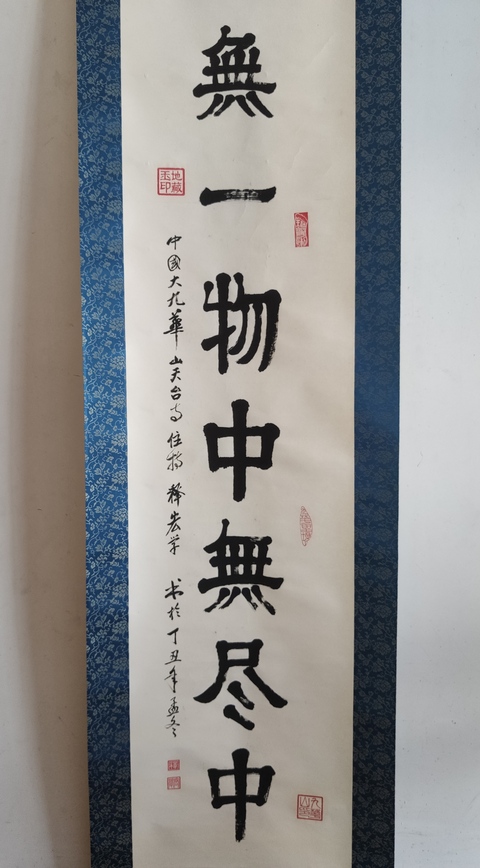 無一物中無尽中
地藏玉印
中國大九華山天台寺住持釋宏学书於丁丑年孟冬